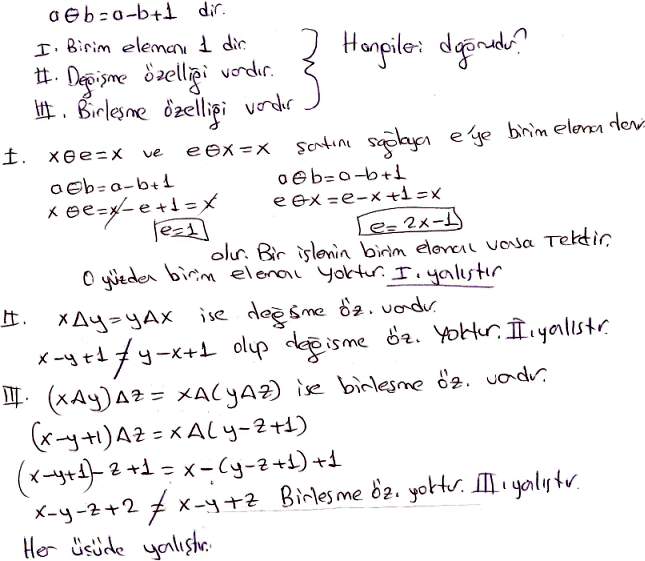 a⊖b=a-b+1 dir.
I. Birim elemanı 1 dir.
II. Değişme özelliği vardır.
III. Birleşme özelliği vardır
Hangileri doğrudur?
I. x⊖e=x ve e⊖x=x şartını sağlayan e'ye birim eleman denir.
a⊖b=a-b+1 a⊖b=a-b+1
x⊖e=x-e+1=x e⊖x=e-x+1=x
e=1 e=2x-1
olur. Bir işlemin birim elemanı varsa Tektir.
O yüzden birim elemanı yoktur. I. yanlıştır
II. xΔy=yΔx ise değişme öz. vardır.
x-y+1≠y-x+1 olup değişme öz. yoktur. II. yanlıştır.
III. (xΔy)Δz=xΔ(yΔz) ise birleşme öz. vardır.
(x-y+1)Δz=xΔ(y-z+1)
(x-y+1)-z+1=x-(y-z+1)+1
x-y-z+2≠x-y+z Birleşme öz. yoktur. III. yanlıştır.
Her üçüde yanlıştır.